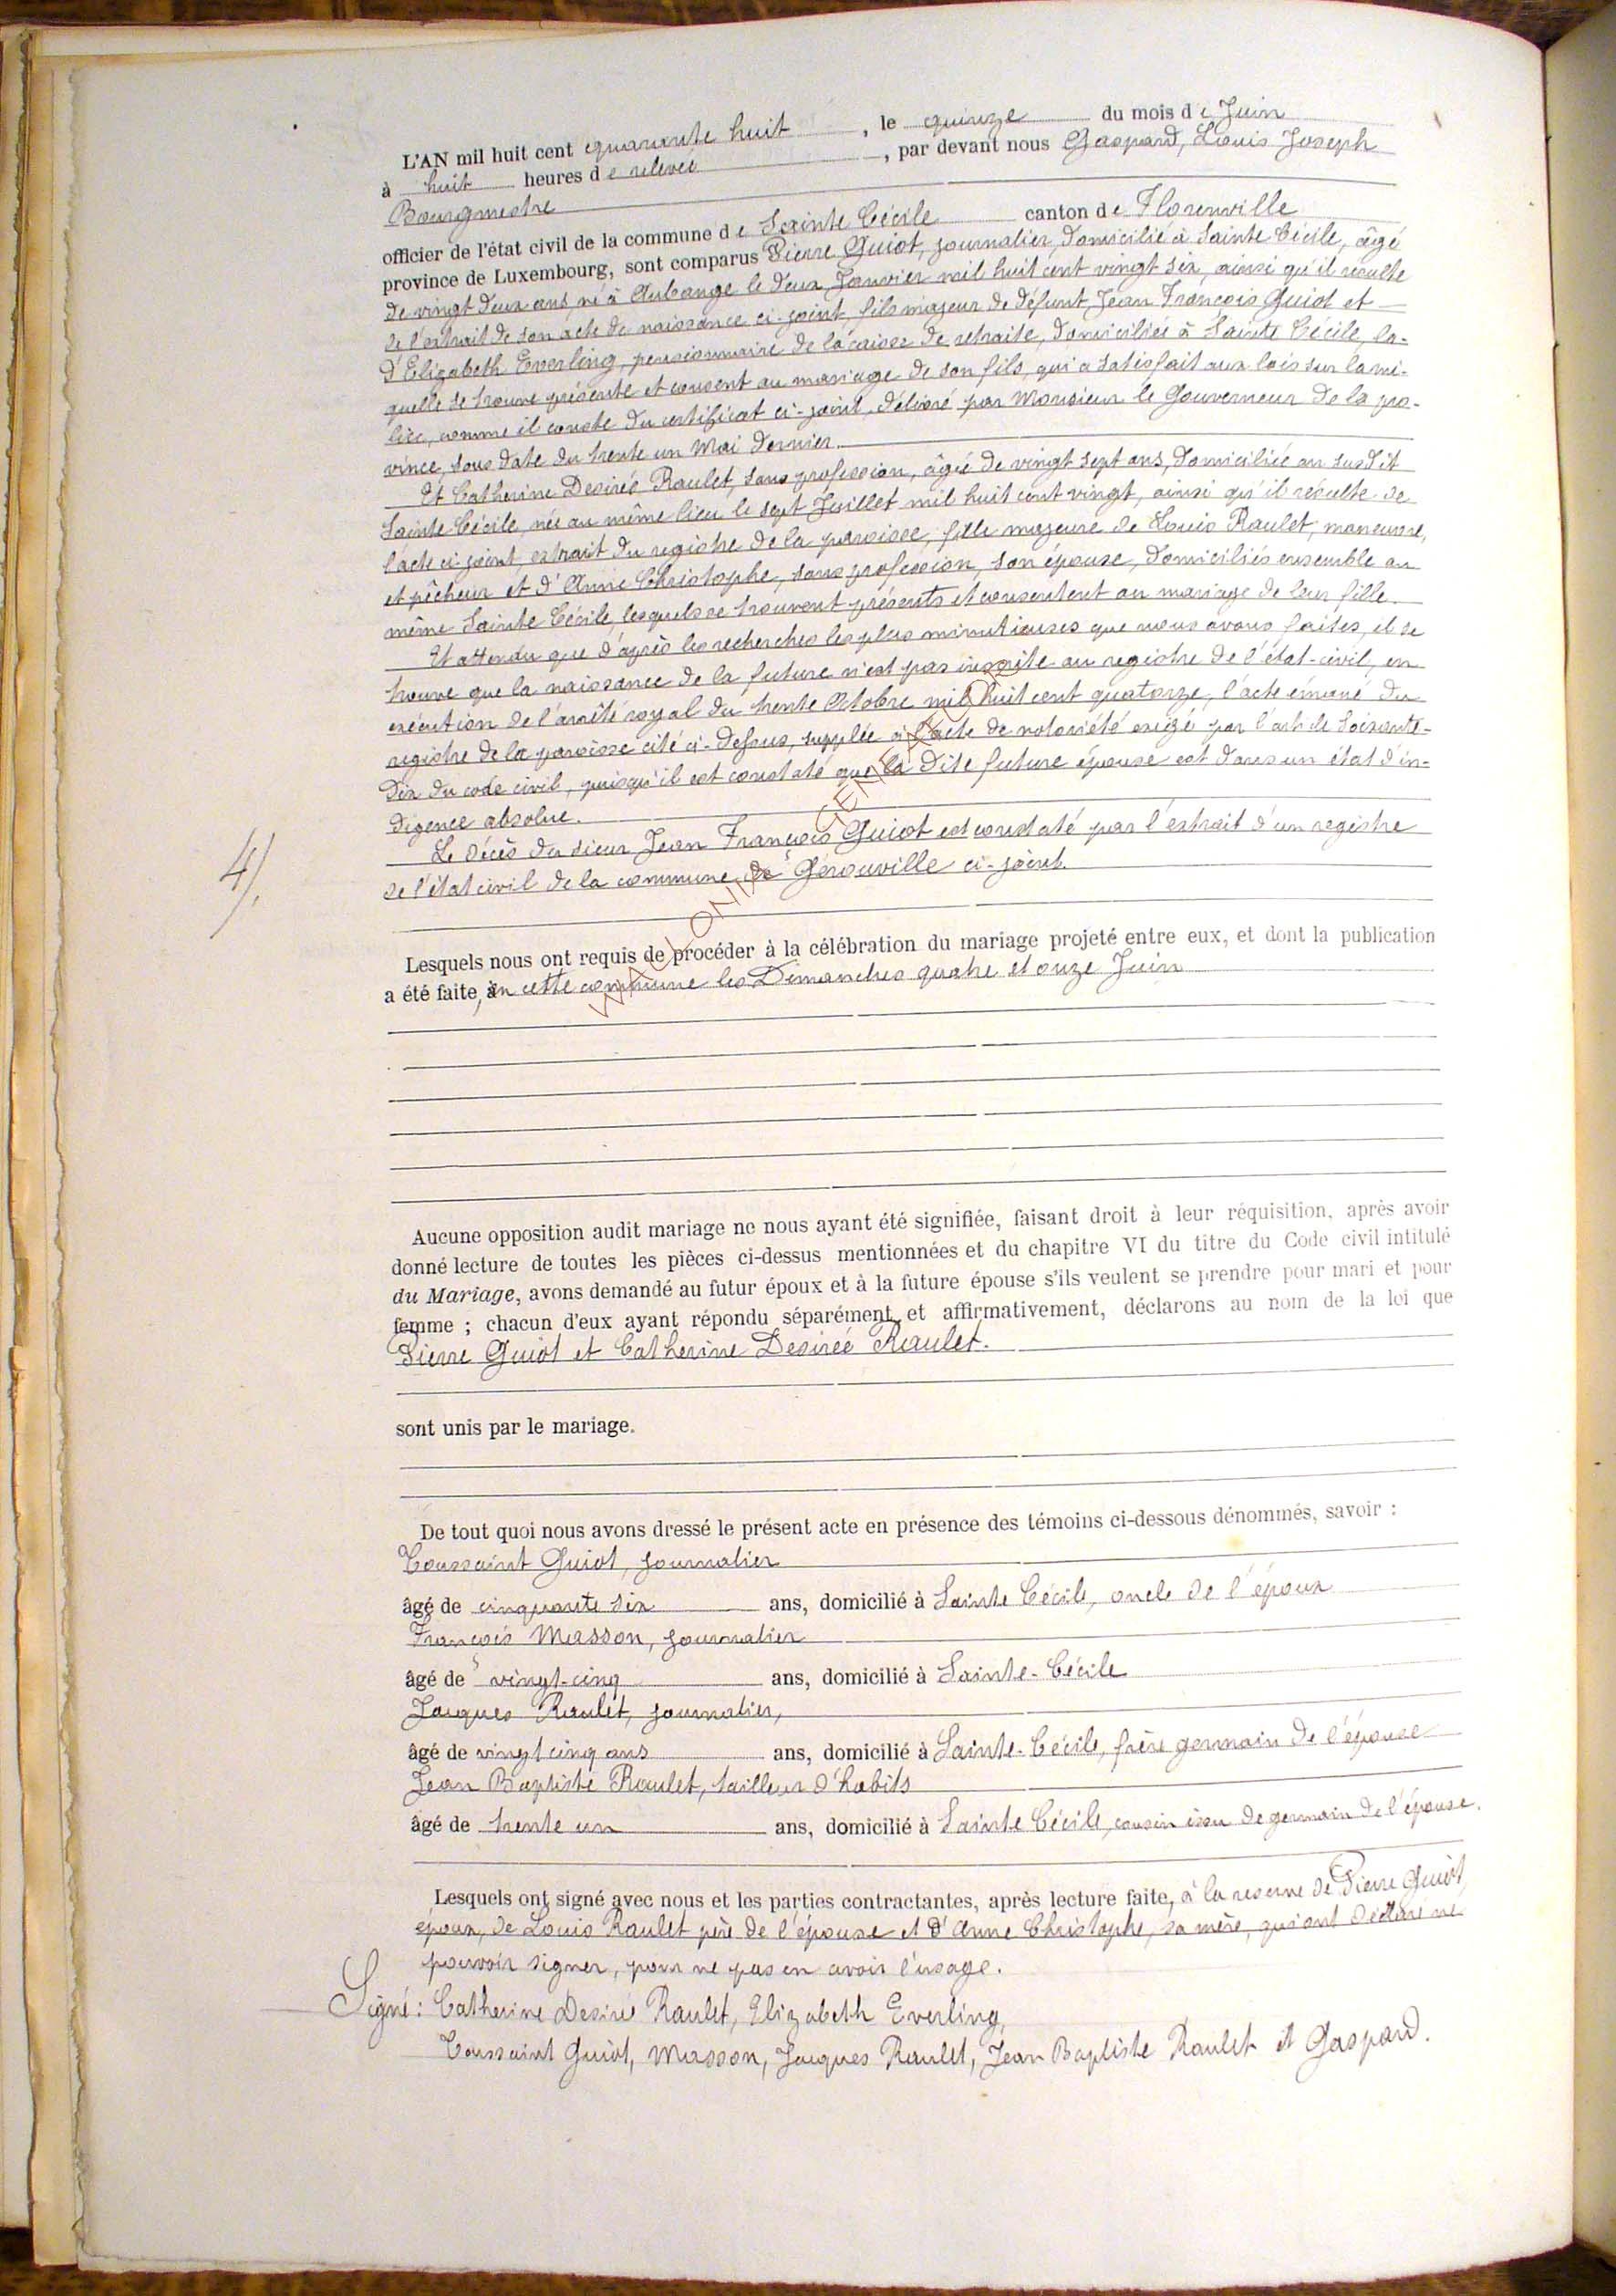 L'AN mil huit cent quarante huit, le quinze du mois de Juin
à huit heures de relevée, par devant nous Gaspard, Louis Joseph
Bourgmestre
officier de l'état civil de la commune de Sainte Cécile canton de Florenville
province de Luxembourg, sont comparus Pierre Guiot, journalier, domicilié à Sainte Cécile, âgé
de vingt deux ans, né à Aubange le deux Janvier mil huit cent vingt six, ainsi qu'il résulte
de l'extrait de son acte de naissance ci-joint, fils majeur de défunt Jean François Guiot et
d'Elizabeth Everling, pensionnaire de la caisse de retraite, domiciliée à Sainte Cécile, la-
quelle se trouve présente et consent au mariage de son fils, qui a satisfait aux lois sur la mi-
lice, comme il conste du certificat ci-joint, délivré par Monsieur le Gouverneur de la pro-
vince, sous date du trente un Mai dernier.
Et Catherine Desirée Raulet, sans profession, âgée de vingt sept ans, domiciliée au susdit
Sainte Cécile, née au même lieu le sept Juillet mil huit cent vingt, ainsi qu'il résulte de
l'acte ci-joint, extrait du registre de la paroisse, fille majeure de Louis Raulet, manœuvre,
et pêcheur et d'Anne Christophe, sans profession, son épouse, domiciliés ensemble au
même Sainte Cécile, lesquels se trouvent présents et consentent au mariage de leur fille.
Et attendu que d'après les recherches les plus minutieuses que nous avons faites, il se
trouve que la naissance de la future n'est pas inscrite au registre de l'état-civil, en
exécution de l'arrêté royal du trente Octobre mil huit cent quatorze, l'acte émané du
registre de la paroisse cité ci-dessus, supplée à l'acte de notoriété exigé par l'article soixante-
dix du code civil, puisqu'il est constaté que la dite future épouse est dans un état d'in-
digence absolue.
Le décès du sieur Jean François Guiot est constaté par l'extrait d'un registre
de l'état civil de la commune de Gérouville ci-joint.
4/.
Lesquels nous ont requis de procéder à la célébration du mariage projeté entre eux, et dont la publication
a été faite, en cette commune les Dimanches quatre et onze Juin
Aucune opposition audit mariage ne nous ayant été signifiée, faisant droit à leur réquisition, après avoir
donné lecture de toutes les pièces ci-dessus mentionnées et du chapitre VI du titre du Code civil intitulé
du Mariage, avons demandé au futur époux et à la future épouse s'ils veulent se prendre pour mari et pour
femme ; chacun d'eux ayant répondu séparément et affirmativement, déclarons au nom de la loi que
Pierre Guiot et Catherine Desirée Raulet.
sont unis par le mariage.
De tout quoi nous avons dressé le présent acte en présence des témoins ci-dessous dénommés, savoir :
Toussaint Guiot, journalier
âgé de cinquante six ans, domicilié à Sainte Cécile, oncle de l'époux
François Masson, journalier
âgé de vingt-cinq ans, domicilié à Sainte-Cécile
Jacques Raulet, journalier,
âgé de vingt cinq ans ans, domicilié à Sainte-Cécile, frère germain de l'épouse
Jean Baptiste Raulet, tailleur d'habits
âgé de trente un ans, domicilié à Sainte Cécile, cousin issu de germain de l'épouse.
Lesquels ont signé avec nous et les parties contractantes, après lecture faite, à la reserve de Pierre Guiot,
époux, de Louis Raulet père de l'épouse et d'Anne Christophe, sa mère, qui ont déclaré ne
pouvoir signer, pour ne pas en avoir l'usage.
Signé : Catherine Desiré Raulet, Elizabeth Everling,
Toussaint Guiot, Masson, Jacques Raulet, Jean Baptiste Raulet et Gaspard.